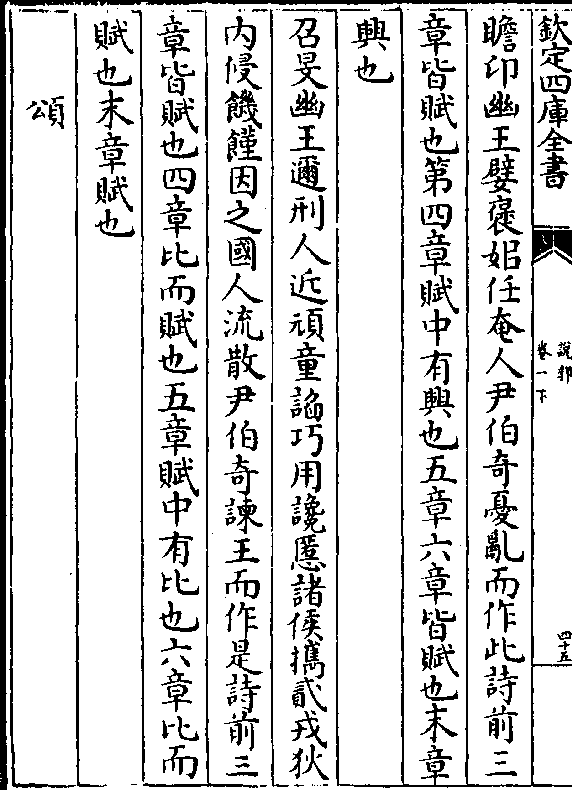 欽定四庫全書
說郛
卷一下
四十五
瞻卬幽王嬖褒姒任奄人尹伯奇憂亂而作此詩前三
章皆賦也第四章賦中有興也五章六章皆賦也末章
興也
召旻幽王邇刑人近頑童諂巧用讒慝諸侯擕貳戎狄
内侵饑饉因之國人流散尹伯奇諫王而作是詩前三
章皆賦也四章比而賦也五章賦中有比也六章比而
賦也末章賦也
頌